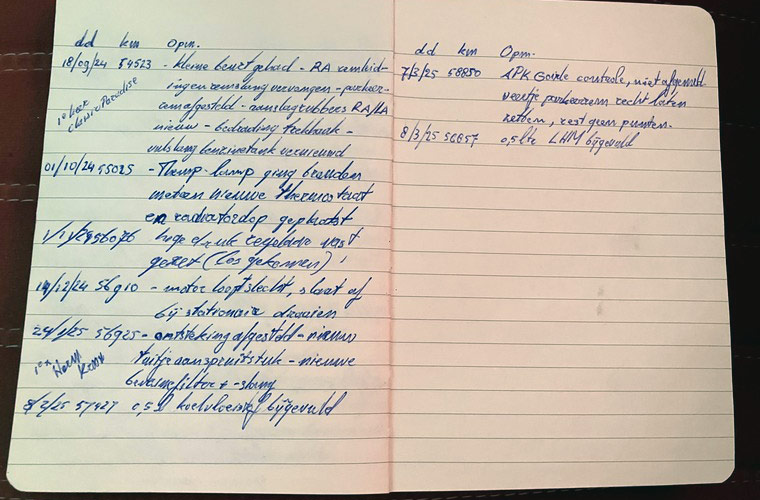 dd km Opm.
18/09/24 54523 - kleine beurt gehad - RA remleid-
ingen remslang vervangen - parkeer-
rem afgesteld - aanslagrubbers RA/LA
nieuw - bedrading trekhaak -
vulslang benzinetank vernieuwd
1e keer
Classic Paradise
01/10/24 55025 - Temp. lamp ging branden
meteen nieuwe thermostaat
en radiatordop geplaatst
56076 hoge druk regelaar vast
gezet (los gekomen)
/12/24 56910 - motor loopt slecht, slaat af
bij stationair draaien
24/1/25 56925 - ontsteking afgesteld - nieuw
tuitje aanspruitstuk - nieuwe
benzinefilter + -slang
1e x Harm
8/2/25 57427 0,5 l koelvloeistof bijgevuld
dd km Opm.
7/3/25 58850 APK Goede controle, niet afgemeld
veertje parkeerrem recht laten
zetten, rest geen punten.
8/3/25 56857 0,5 ltr LHM bijgevuld